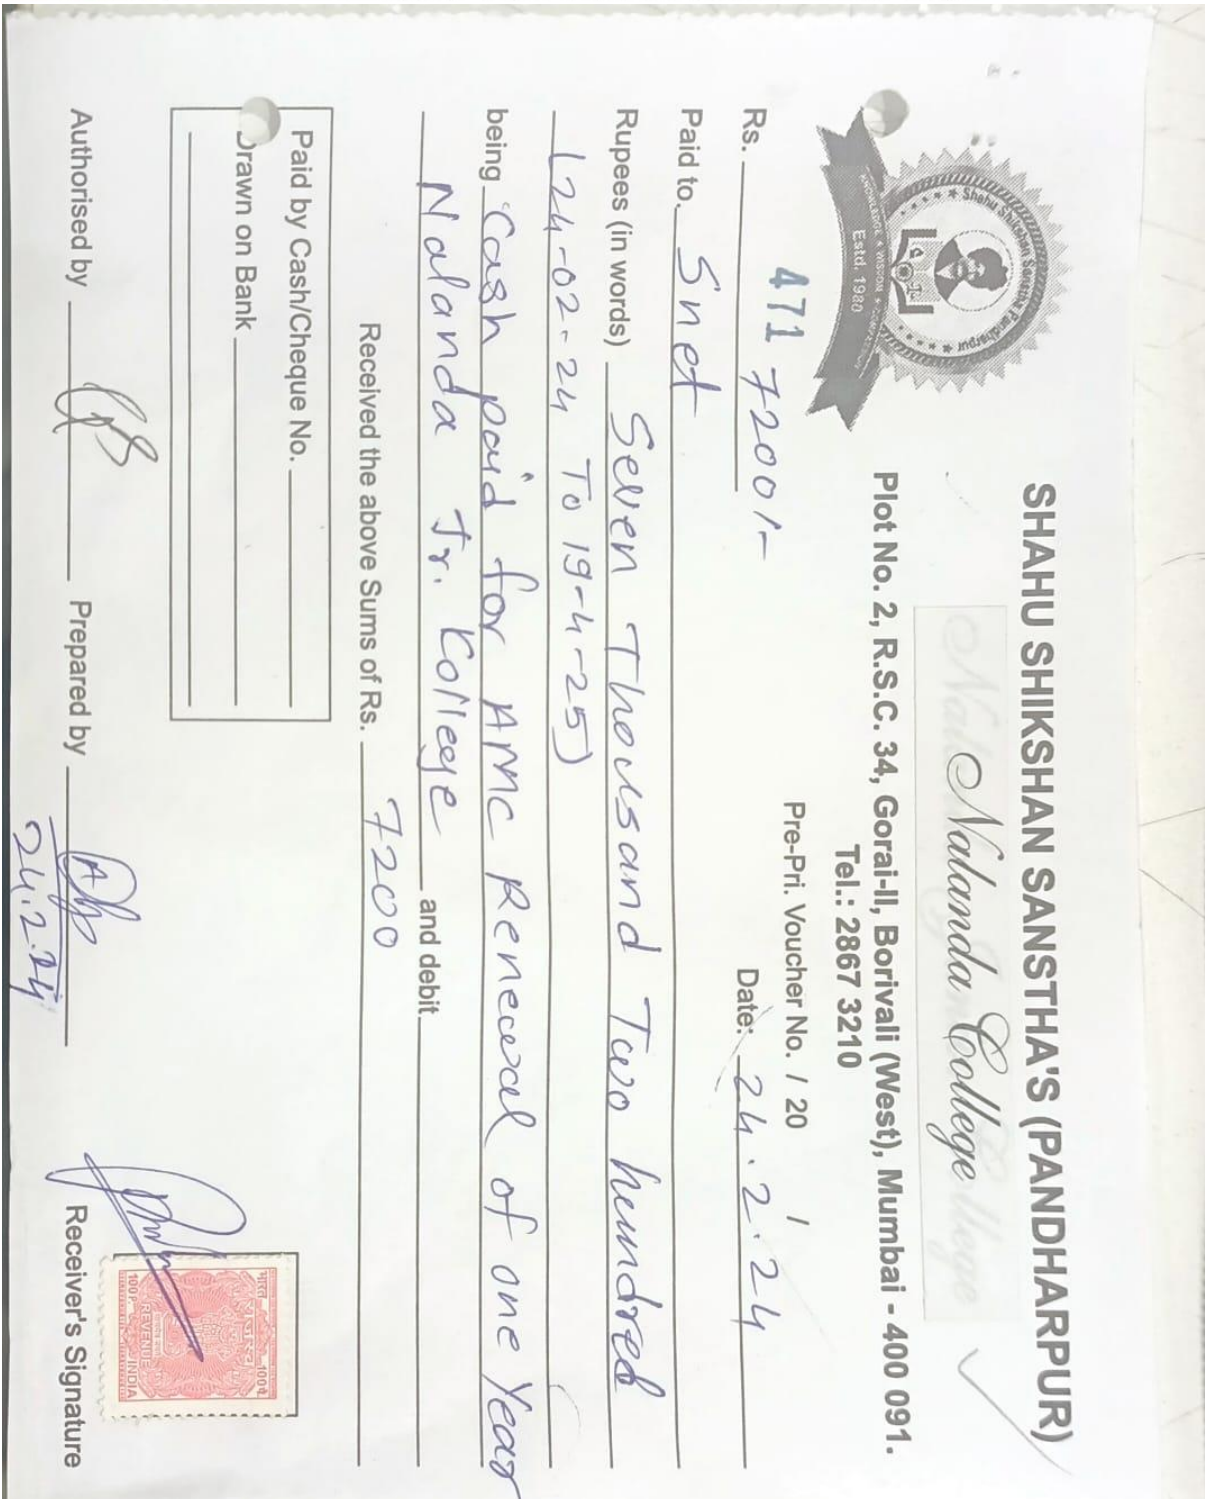 SHAHU SHIKSHAN SANSTHA'S (PANDHARPUR)
Nalanda College
Plot No. 2, R.S.C. 34, Gorai-II, Borivali (West), Mumbai - 400 091.
Tel.: 2867 3210
Shahu Shikshan Sanstha Pandharpur
Estd. 1980
471
Pre-Pri. Voucher No. / 20 /
Rs. 7200/-
Date: 24.2.24
Paid to. Snet
Rupees (in words) Seven Thousand Two hundred
(24-02-24 To 19-4-25)
being Cash paid for AMC Renewal of one Year
Nalanda Jr. Kollege and debit
Received the above Sums of Rs. 7200
Paid by Cash/Cheque No.
Drawn on Bank
REVENUE
INDIA
100 P.
Authorised by
Prepared by
24.2.24
Receiver's Signature